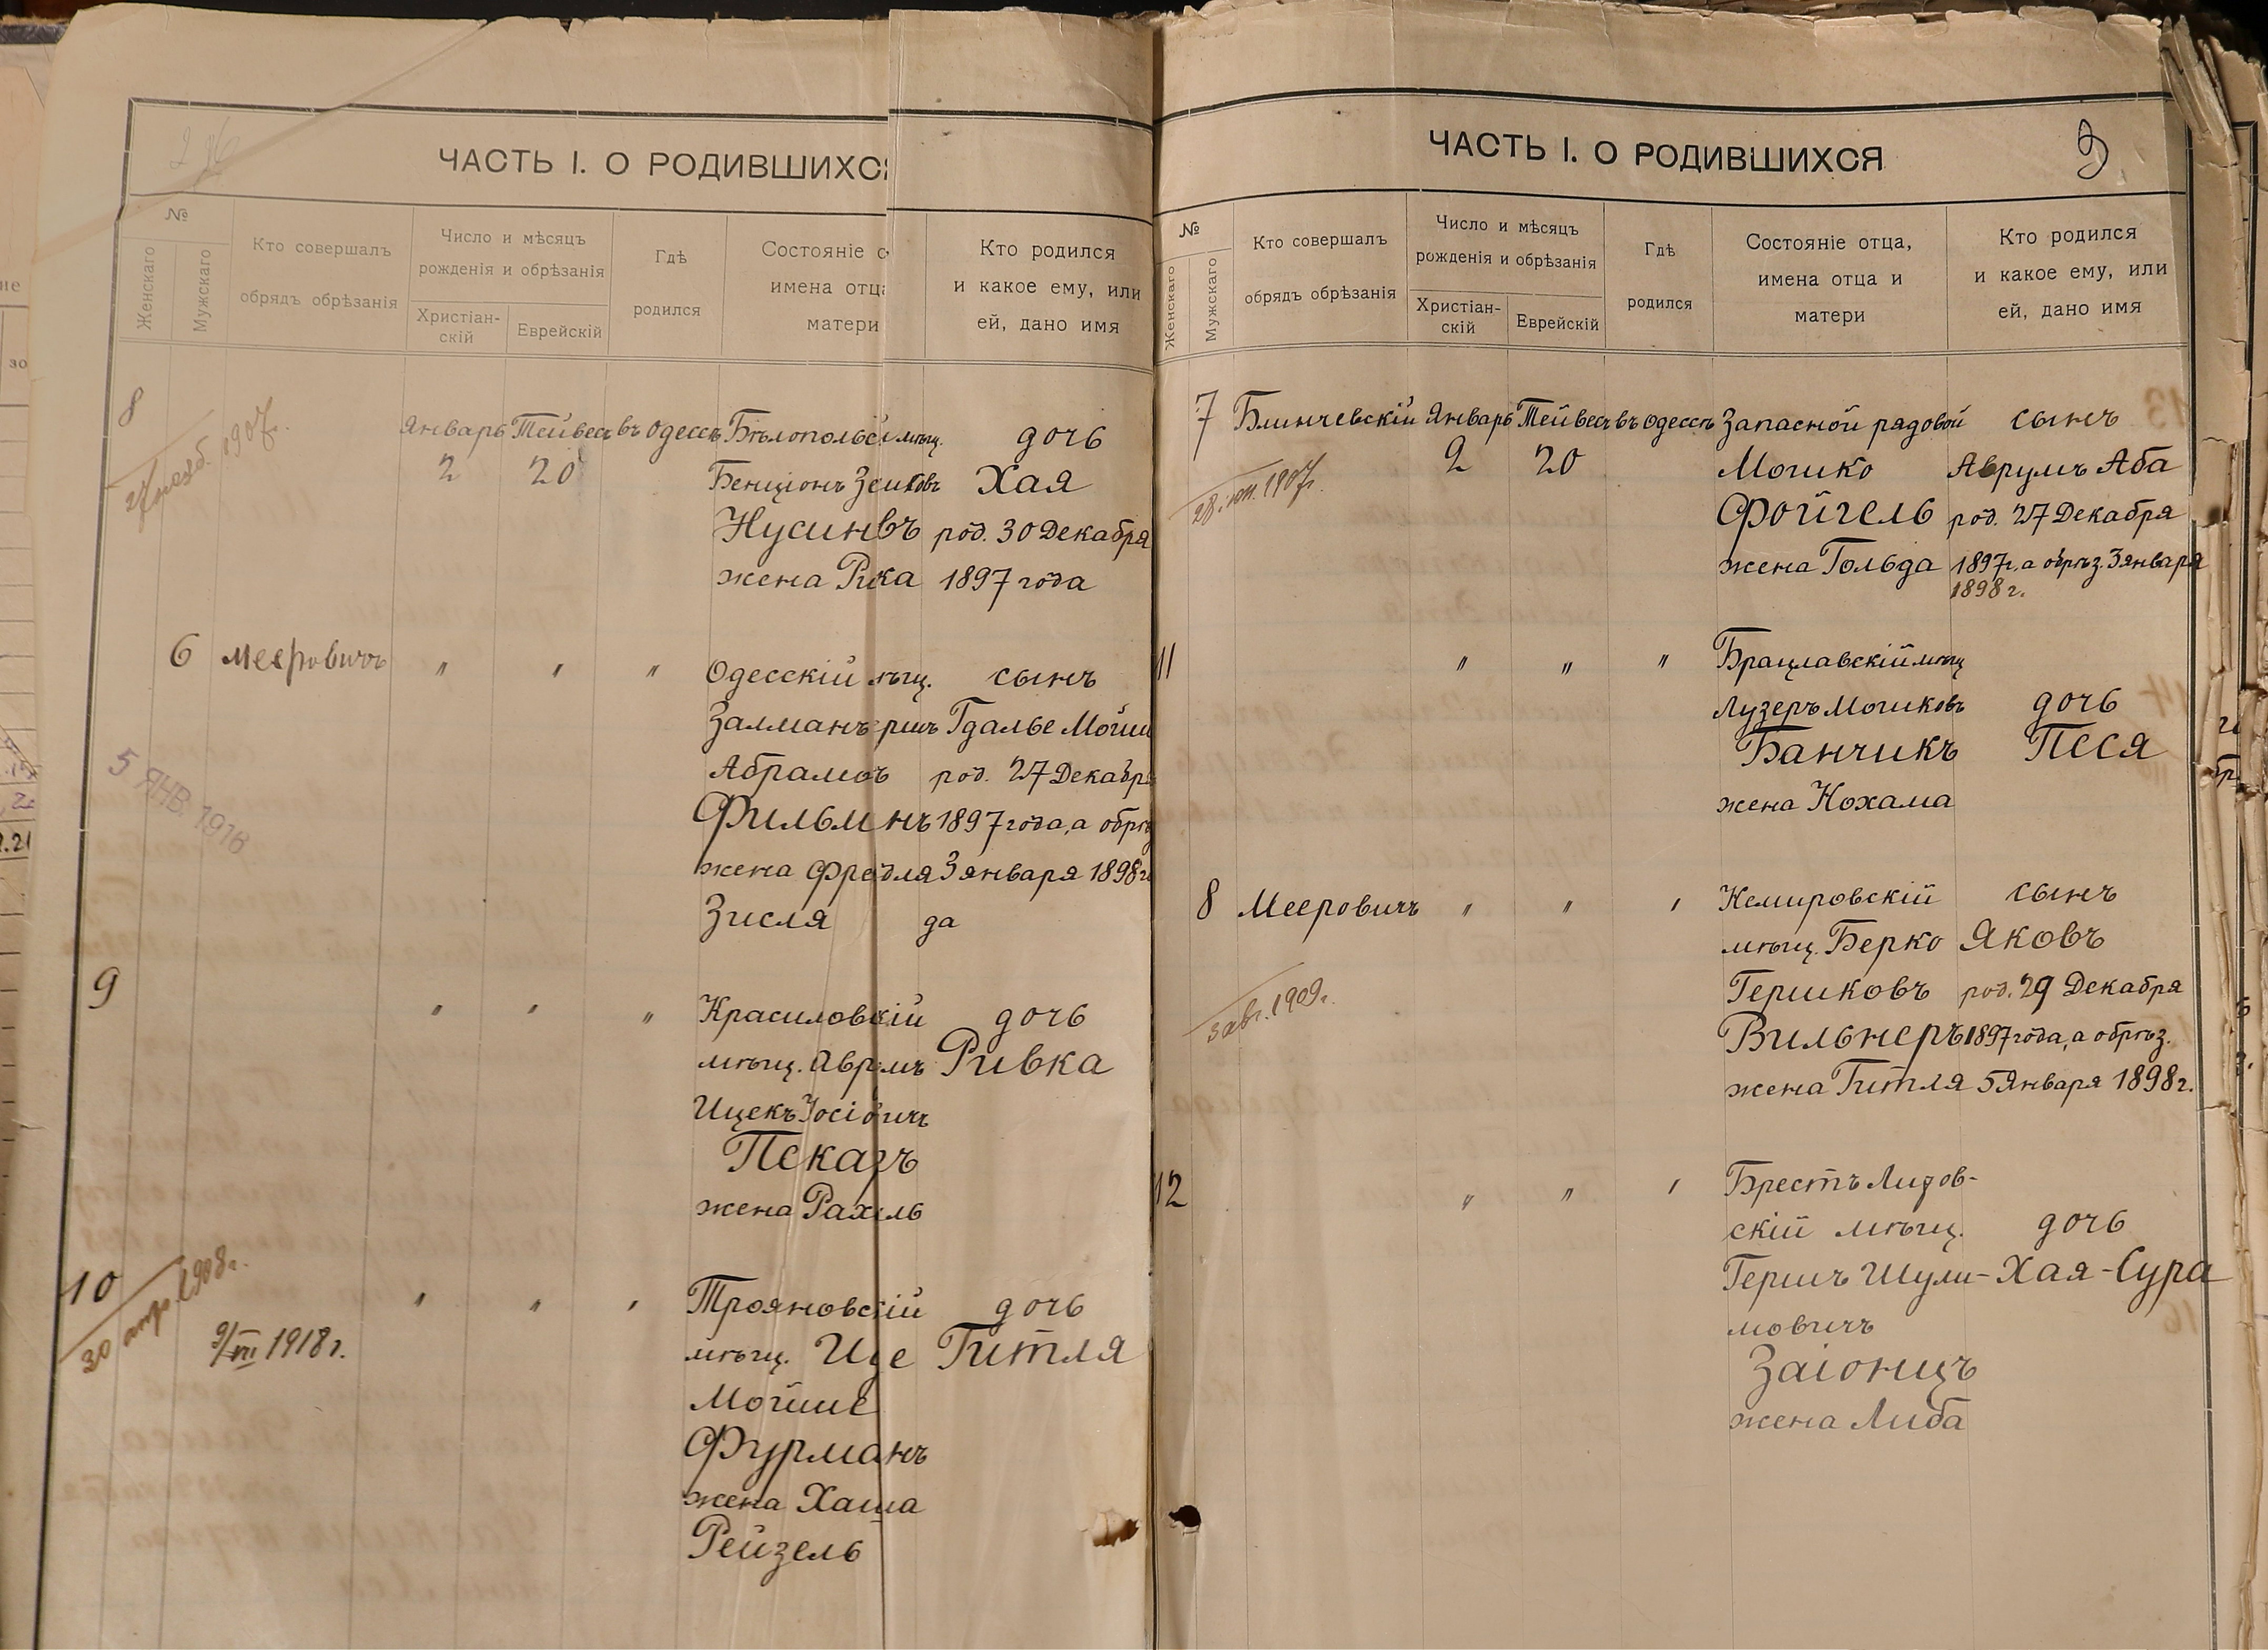 ЧАСТЬ I. О РОДИВШИХС
№
Женскаго
Мужскаго
Кто совершалъ
обрядъ обрѣзанія
Число и мѣсяцъ
рожденія и обрѣзанія
Христіан-
скій
Еврейскій
Гдѣ
родился
Состояніе
имена отца
матери
Кто родился
и какое ему, или
ей, дано имя
8
1907г.
Январь Тейвесъ въ Одессѣ Бѣлопольскі мѣщ. дочь
2 20 Бенціонъ Хая
Нусинвъ род. 30 Декабря
жена Ривка 1897 года
6 Мееровичъ " " " Одесскій мѣщ. сынъ
Залманъ Гдалье Мойш
Абрамовъ род. 27 Декабря
Фильм нъ 1897 года, а обрѣз
жена Фрейдля 3 января 1898 г
Зисля да
5 ЯНВ. 1916
9 " " " Красиловскій дочь
мѣщ. Аврумъ Ривка
Ицекъ
Пекаръ
жена Рахиль
10 " " " Трояновскій дочь
30 апр. 1908г.
9/VII 1918 г.
мѣщ. Гитля
Мойше
Фурманъ
жена Хаша
Рейзель
ЧАСТЬ I. О РОДИВШИХСЯ
9
№
Женскаго
Мужскаго
Кто совершалъ
обрядъ обрѣзанія
Число и мѣсяцъ
рожденія и обрѣзанія
Христіан-
скій
Еврейскій
Гдѣ
родился
Состояніе отца,
имена отца и
матери
Кто родился
и какое ему, или
ей, дано имя
7 Блинчевскій Январь Тейвесъ въ Одессѣ Запасной рядовой сынъ
2 20 Мошко Аврумъ Аба
1907г.
Фойгель род. 27 Декабря
жена Гольда 1897г, а обрѣз. 3 января
1898 г.
11 " " " Брацлавскій мѣщ
Лузеръ Мошковъ дочь
Банчикъ Песя
жена Нохама
8 Мееровичъ " " " Немировскій сынъ
мѣщ. Берко Яковъ
Гершковъ род. 29 Декабря
3 авг. 1909г.
Вильнеръ 1897 года, а обрѣз.
жена Гитля 5 Января 1898 г.
12 " " " Брестъ Литов-
скій мѣщ. дочь
Гершъ Шули- Хая-Сура
мовичъ
Заіонцъ
жена Либа